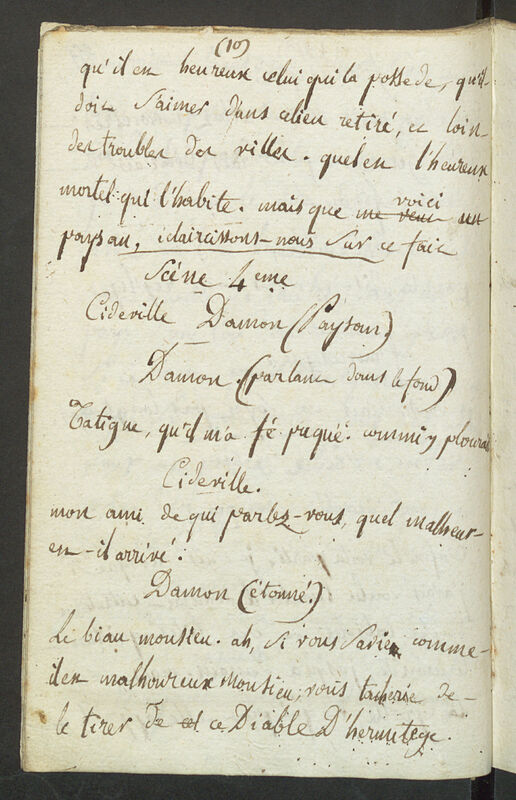 (10)
qu'il est heureux celui qui la possede, qu'il
doit s'aimer dans ce lieu retiré, et loin
des troubles des villes. quel est l'heureux
mortel qui l'habite. mais que me veut voici un
paysan, éclaircissons-nous sur ce fait
Scéne 4eme
Cideville Damon (Paysan)
Damon. (parlant dans le fond)
Tatigue, qu'il m'a fé puqué. commi y plourait
Cideville.
mon ami de qui parlez-vous, quel malheur
est-il arrivé.
Damon (étonné.)
Le biau monsieu. ah, si vous saviez comme
il est malhoureux monsieu; vous tacherie de
le tirer de cet ce Diable D'hermitege.